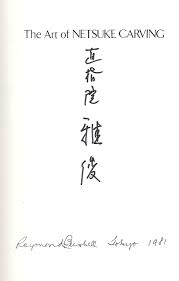 The Art of NETSUKE CARVING
直指院 雅俊
Raymond Bushell Tokyo 1981